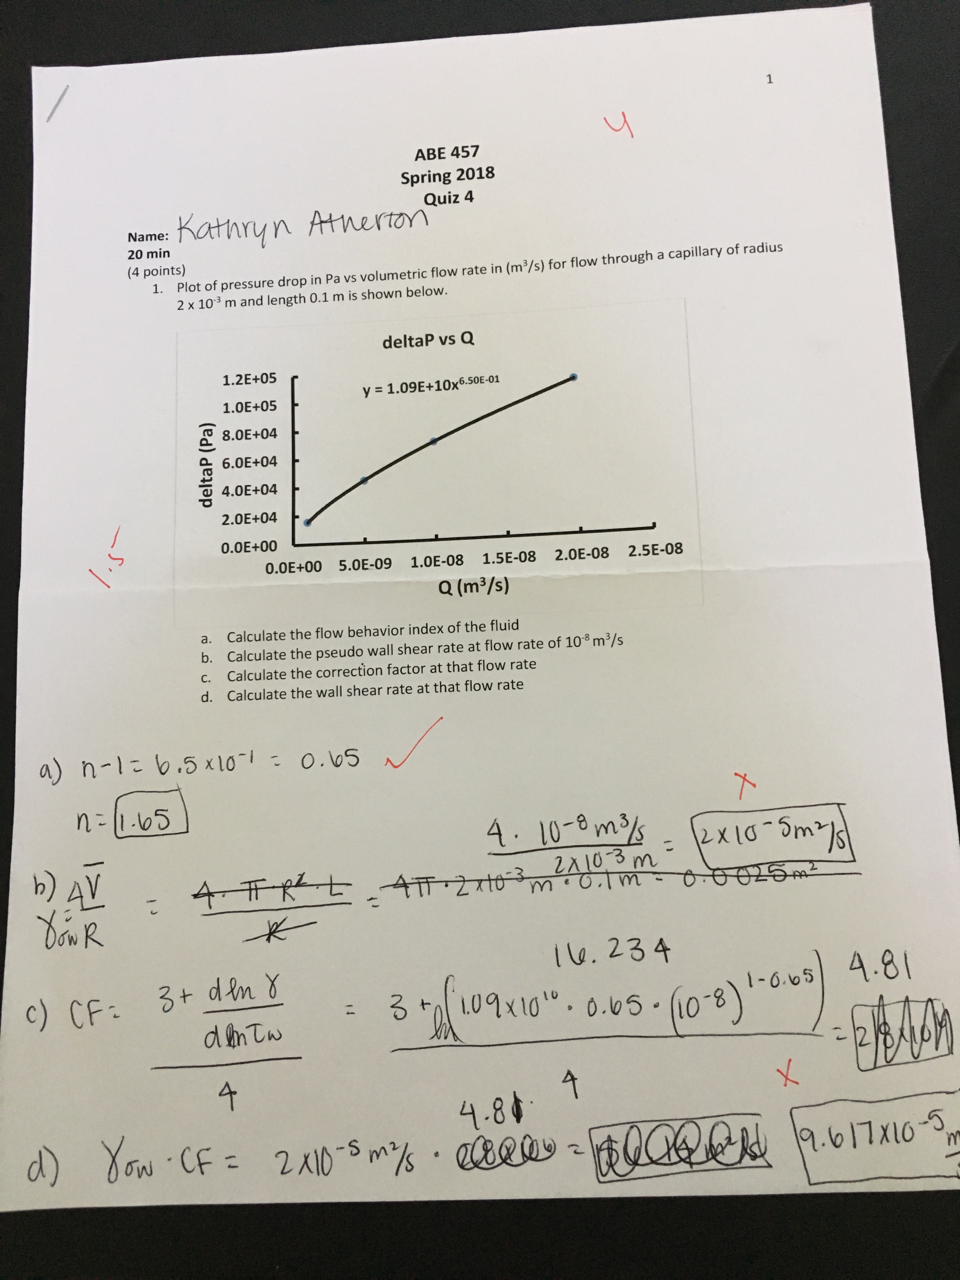 1
4
ABE 457
Spring 2018
Quiz 4
Name: Kathryn Atherton
20 min
(4 points)
1. Plot of pressure drop in Pa vs volumetric flow rate in (m³/s) for flow through a capillary of radius
2 x 10⁻³ m and length 0.1 m is shown below.
deltaP vs Q
y = 1.09E+10x^6.50E-01
deltaP (Pa)
1.2E+05
1.0E+05
8.0E+04
6.0E+04
4.0E+04
2.0E+04
0.0E+00
0.0E+00 5.0E-09 1.0E-08 1.5E-08 2.0E-08 2.5E-08
Q (m³/s)
1.5
a. Calculate the flow behavior index of the fluid
b. Calculate the pseudo wall shear rate at flow rate of 10⁻⁸ m³/s
c. Calculate the correction factor at that flow rate
d. Calculate the wall shear rate at that flow rate
a) n-1 = 6.5 x10⁻¹ = 0.65
n = 1.65
4 · 10⁻⁸ m³/s / 2x10⁻³ m = 2x10⁻⁵ m²/s
b) 4V̅ / R = 4·π·R²·L / R = 4π · 2x10⁻³ m · 0.1 m = 0.0025 m²
γow
16.234
c) CF = (3 + dlnγ / dlnτw) / 4 = (3 + ln(1.09x10¹⁰ · 0.65 · (10⁻⁸)^1-0.65)) / 4 = 4.81
d) γow · CF = 2x10⁻⁵ m²/s · 4.81 = 9.617x10⁻⁵ m